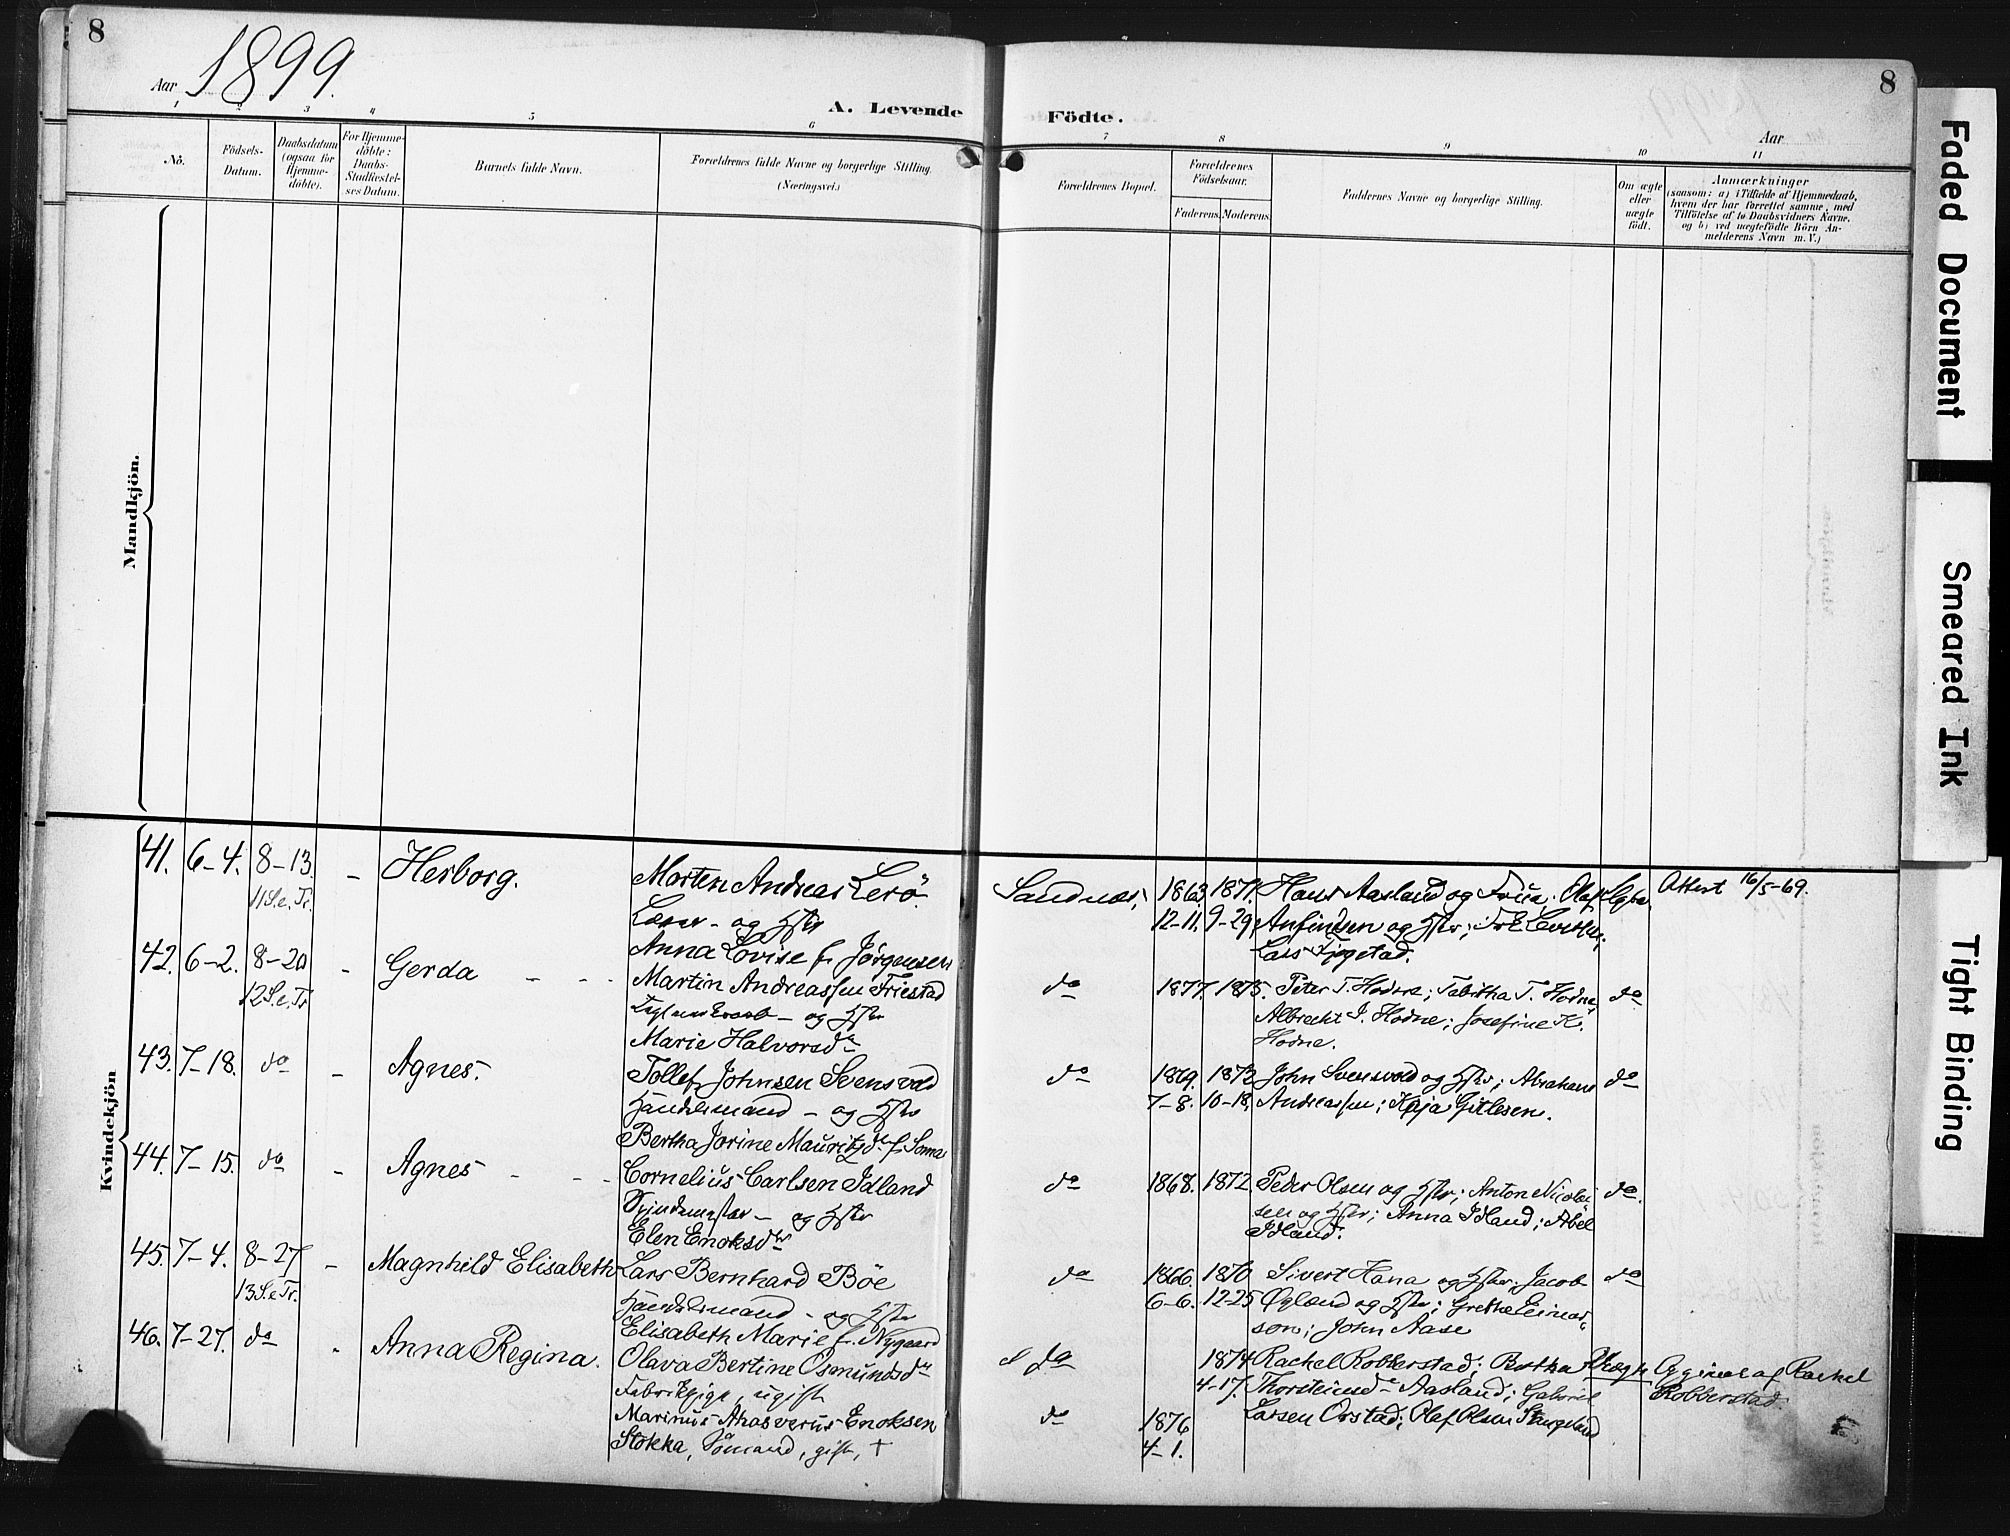 8
Aar 1899.
A. Levende Födte.
8
Aar
1 2 3 4 5 6 7 8 9 10 11
No.
Födsels-
Datum.
Daabsdatum
(ogsaa for
Hjemme-
döbte).
For Hjemme-
döbte:
Daabs-
Stadfæstel-
ses Datum.
Barnets fulde Navn.
Forældrenes fulde Navne og borgerlige Stilling.
(Næringsvei.)
Forældrenes Bopæl.
Forældrenes
Födselsaar.
Faderens. Moderens.
Faddernes Navne og borgerlige Stilling.
Om ægte
eller
uægte
födt.
Anmærkninger
(saasom: a) i Tilfælde af Hjemmedaab,
hvem der har forrettet samme, med
Tilföielse af to Daabsvidners Navne,
og b) ved uegtefödte Börn An-
melderens Navn m. V.)
Mandkjön.
Kvindekjön
41. 6-4. 8-13. - Herborg.
11 S. e. Tr.
Morten Andreas Lerö
Læser - og Hstr
Anna Lovise f. Jørgensen
Sandnæs, 1863 1871. Hans Aasland og Frue; Olaf
12-11. 9-29. Anfindsen og Hstr;
Lars
Attest 16/5-69.
42. 6-2. 8-20 - Gerda - - -
12 S. e. Tr
Martin Andreassen Friestad
- og Hstr
Marie Halvorsdr
do 1877. 1875. Peter T. Hodne; Tabitha T. Hodne do
Albrecht I. Hodne; Josefine K.
Hodne.
43. 7-18. do - Agnes.
Tollef Johnsen Svensvold
Handelsmand - og Hstr
Bertha Jorine Mauritzdr f. Soma
do 1869. 1872 John Svensvold og Hstr; Abraham do
7-8. 10-18. Andreassen; Kaja Gitlesen.
44. 7-15. do - Agnes - - -
Cornelius Carlsen Idland
- og Hstr
Elen Enoksdr
do 1868. 1872. Peder Olsen og Hstr; Anton Nicolai do.
sen og Hstr; Anna Idland; Abel
Idland.
45. 7-4. 8-27 - Magnhild Elisabeth
13 S. e Tr.
Lars Bernhard Böe
Handelsmand - og Hstr
Elisabeth Marie f. Nygaard
do 1866. 1870 Sivert Hana og Hstr; Jacob do
6-6. 12-25 Øglænd og Hstr; Grethe Einar-
son; John Aase
46. 7-27. do - Anna Regina.
Olava Bertine Osmundsdr
Fabrikpige, ugift
Marinus Ahasverus Enoksen
Stokka, Sømand, gift, +
do 1874 Rachel Robberstad; Bertha Uægte Opgivet af Rachel
4-17. Thorsteinsdr Aasland; Gabriel Robberstad
do 1876 Larsen Orstad; Olaf Olsen Stangeland
4-1.
Faded Document
Smeared Ink
Tight Binding